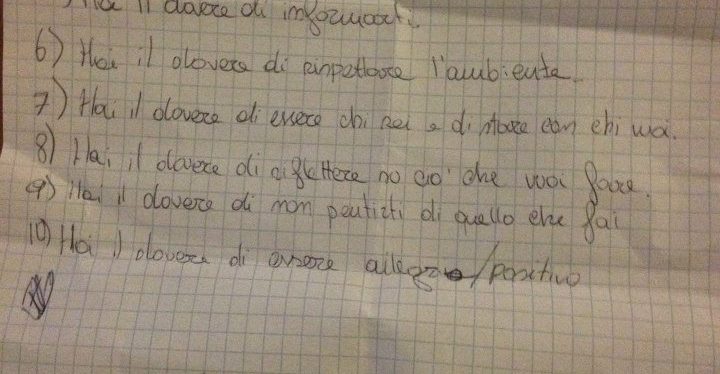 Hai il dovere di informarti.
6) Hai il dovere di rispettare l'ambiente.
7) Hai il dovere di essere chi sei e di stare con chi vuoi.
8) Hai il dovere di riflettere su ciò che vuoi fare.
9) Hai il dovere di non pentirti di quello che fai
10) Hai il dovere di essere allegro/positivo